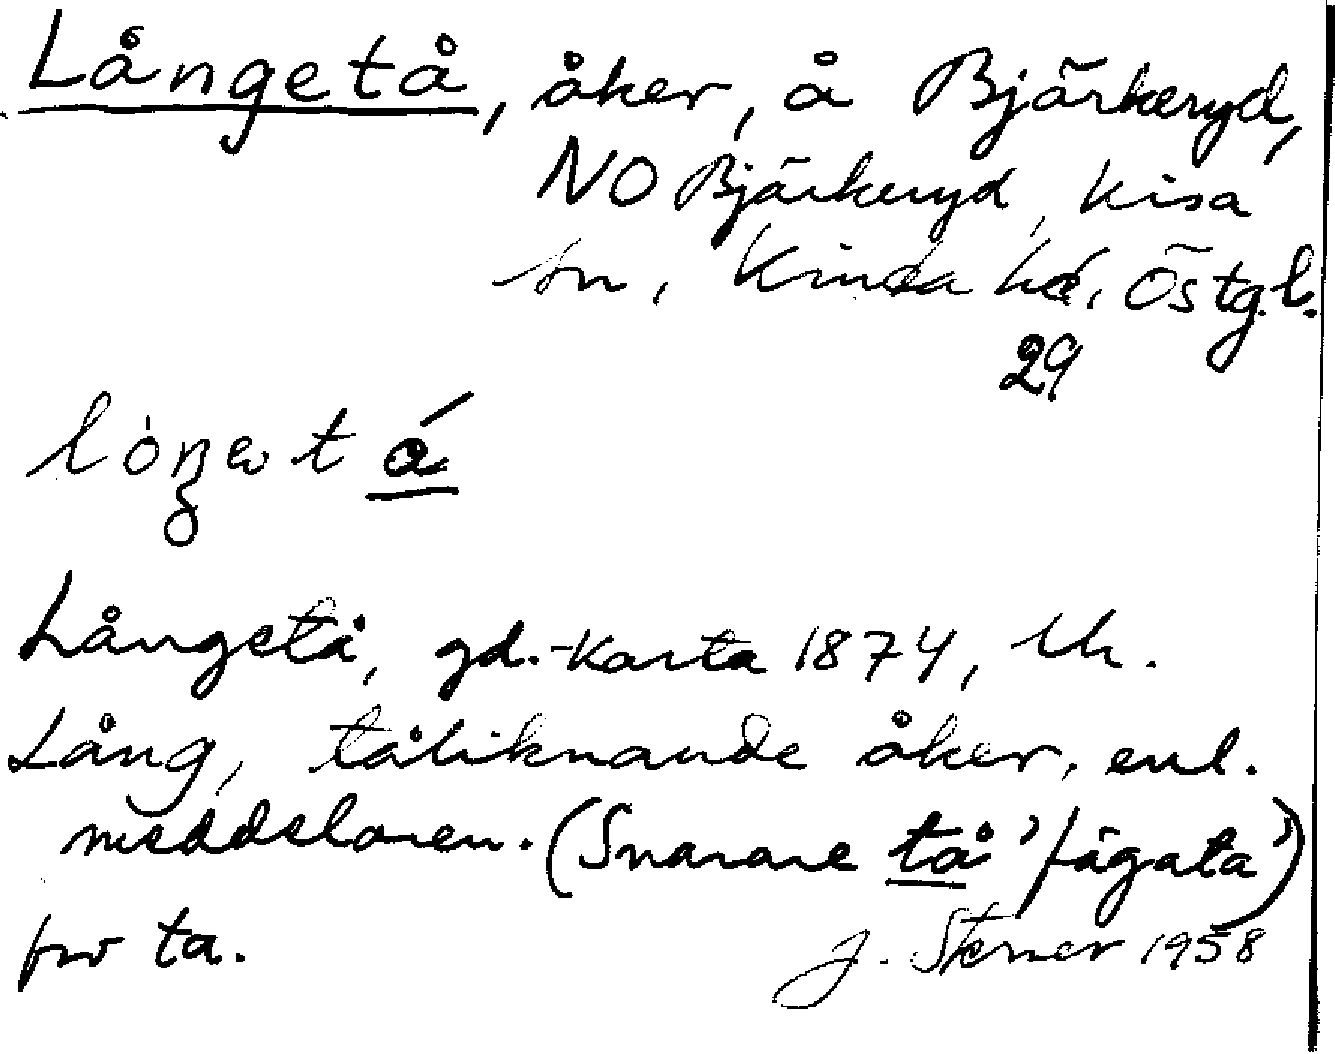 Långetå, åker, å Bjärkeryd,
NO Bjärkeryd, Kisa
sn, Kinda hd, Östg.l.
29
Långetå, gd.-karta 1874, Uh.
Lång, tåliknande åker, enl.
meddelaren. (Snarare tå 'fägata')
fw ta.
J. Sterner 1958